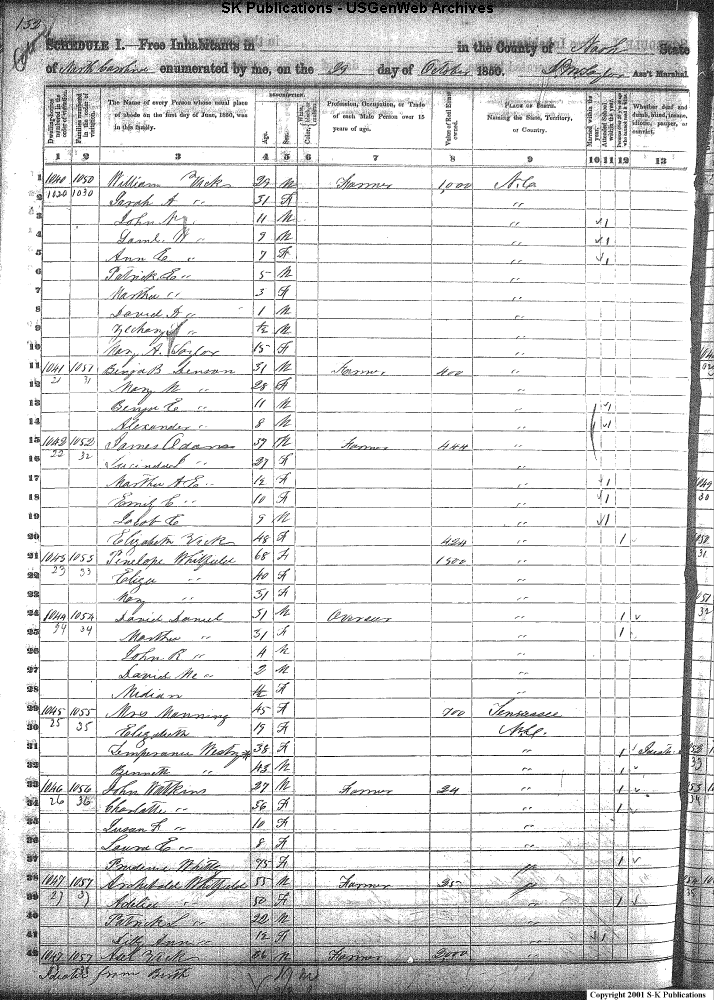 SK Publications - USGenWeb Archives
153
SCHEDULE I.—Free Inhabitants in in the County of Nash State
of North Carolina enumerated by me, on the 29 day of October 1850. Ass't Marshal
DESCRIPTION.
Dwelling-houses numbered in the order of visitation. Families numbered in the order of visitation. The Name of every Person whose usual place of abode on the first day of June, 1850, was in this family. Age. Sex. Profession, Occupation, or Trade of each Male Person over 15 years of age. Value of Real Estate owned. PLACE OF BIRTH. Naming the State, Territory, or Country. Married within the year. Attended School within the year. Whether deaf and dumb, blind, insane, idiotic, pauper, or convict.
1 2 3 4 5 6 7 8 9 10 11 12 13
1 1040 1050 William Vick 29 M Farmer 1,000 N.C.
2 1020 1030 Sarah A " 31 F "
3 John " 11 M " 1
4 Saml. W " 9 M " 1
5 Ann E " 7 F " 1
6 Patrick E " 5 M "
7 Martha " 3 F "
8 David D " 1 M "
9 " M "
10 Mary A. Taylor 15 F "
11 1041 1051 Benja B 31 M Farmer 400 "
12 21 31 Mary " 28 F "
13 Benja E " 11 M " 1
14 Alexander " 8 M " 1
15 1042 1052 James Adams 39 M Farmer 444 "
16 22 32 Lucinda " 27 F "
17 Martha A E " 12 F " 1
18 Emily C " 10 F " 1
19 Jacob E " 9 M " 1
20 Elizabeth Vick 48 F 424 " 1
21 1043 1053 Penelope Whitfield 68 F 1500 "
22 23 33 Eliza " 40 F "
23 Mary " 31 F "
24 1044 1054 David Daniel 31 M Overseer " 1
25 24 34 Martha " 31 F " 1
26 John R " 4 M "
27 David " 2 M "
28 Median F "
29 1045 1055 Mrs Manning 45 F 700 Tennessee
30 25 35 Elizabeth " 19 F N.C.
31 Temperance 38 F " 1
32 Bennett " 43 M " 1
33 1046 1056 John Watkins 27 M Farmer 24 " 1
34 26 36 Charlotte " 56 F " 1
35 Susan F " 10 F "
36 Laura E " 8 F "
37 Prudence 75 F " 1
38 1047 1057 Archibald Whitfield 55 M Farmer 25 "
39 27 37 Adelia " 50 F " 1
40 Patrick S " 22 M "
41 Ann " 12 F " 1
42 1047 1057 Vick 56 M Farmer 2000 "
from Birth
Copyright 2001 S-K Publications